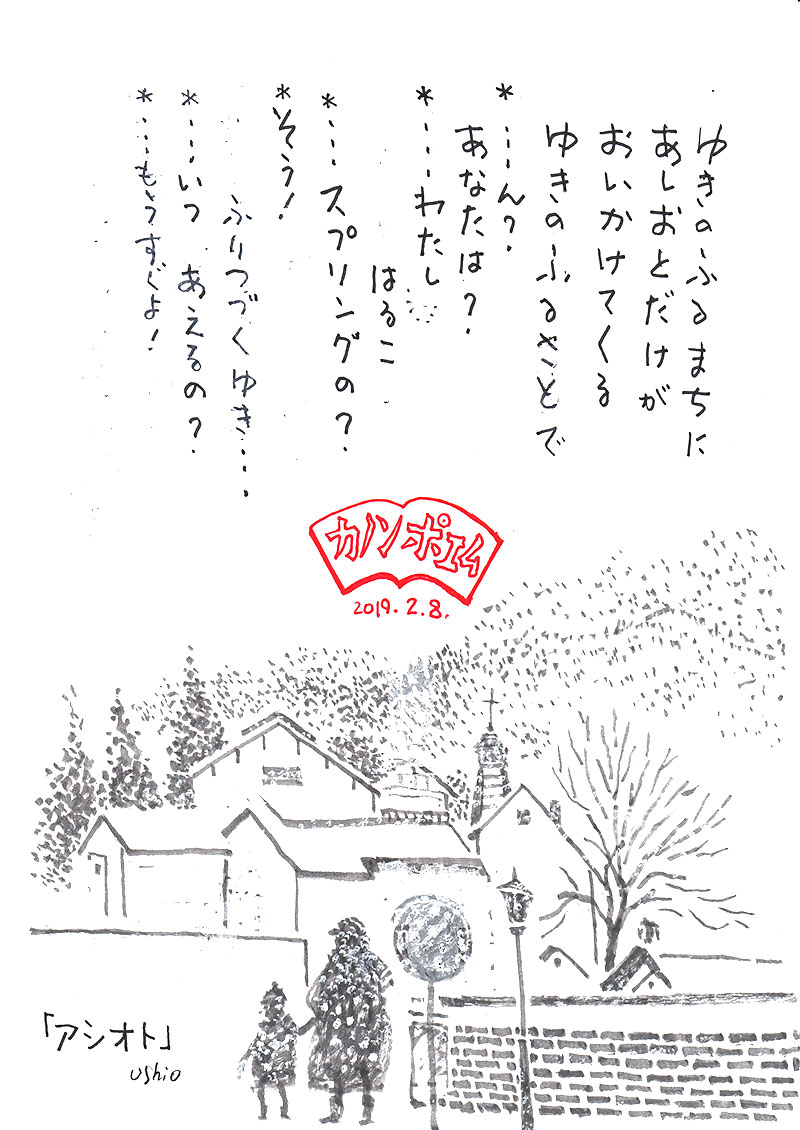 ゆきのふるまちに
あしおとだけが
おいかけてくる
ゆきのふるさとで
*…ん？
あなたは？
*…わたし
はるこ
*…スプリングの？
*そう！
ふりつづくゆき…
*…いつ あえるの？
*…もうすぐよ！
カノンポエム
2019.2.8.
「アシオト」
ushio